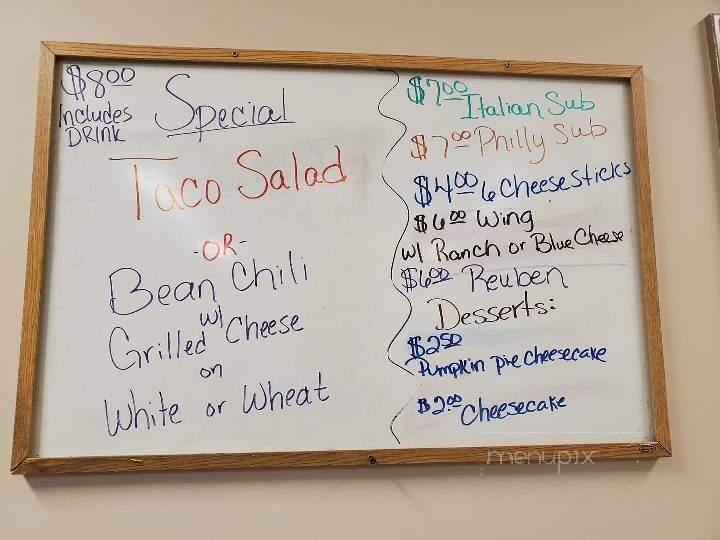 $8.00 Special
Includes
DRINK
Taco Salad
-OR-
Bean Chili
w/
Grilled Cheese
on
White or Wheat
$7.00 Italian Sub
$7.00 Philly Sub
$4.00 6 Cheese Sticks
$6.00 Wing
w/ Ranch or Blue Cheese
$6.00 Reuben
Desserts:
$2.50
Pumpkin Pie Cheesecake
$2.00 Cheesecake
menupix